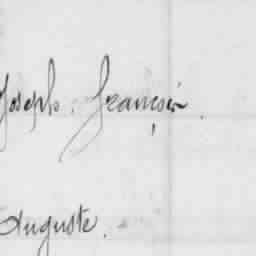 Joseph, François.
Auguste.